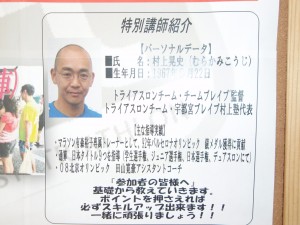 特別講師紹介
【パーソナルデータ】
■氏　　名：村上晃史「むらかみこうじ」
■生年月日：1967年　月22日
トライアスロンチーム・チームブレイブ監督
トライアスロンチーム・宇都宮ブレイブ村上塾代表
【主な指導実績】
・マラソン有森裕子専属トレーナーとして、92年バルセロナオリンピック 銀メダル獲得に貢献
・通算、日本タイトル8つを指導（学生選手権、ジュニア選手権、日本選手権、デュアスロンにて）
・08北京オリンピック　田山寛豪アシスタントコーチ
「参加者の皆様へ」
基礎から教えていきます。
ポイントを押さえれば
必ずスキルアップ出来ます！！
一緒に頑張りましょう！！